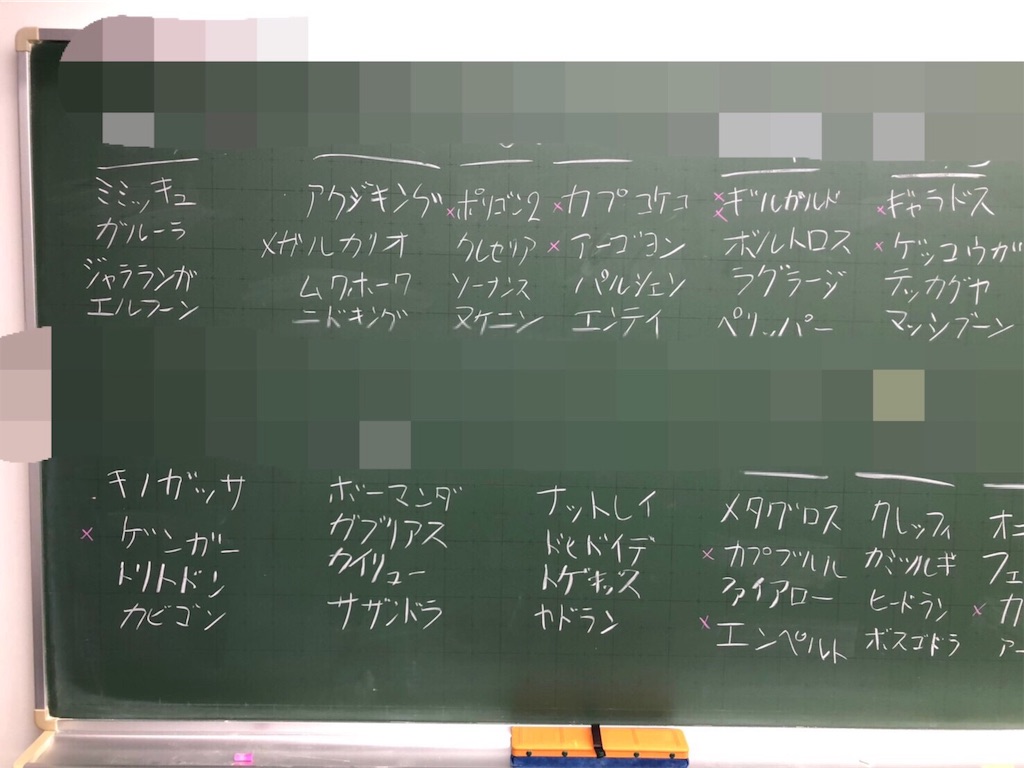 ミミッキュ
ガルーラ
ジャラランガ
エルフーン
アクジキング
メガルカリオ
ムクホーク
ニドキング
×ポリゴン2
クレセリア
ソーナンス
ヌケニン
×カプコケコ
×アーゴヨン
パルシェン
エンテイ
××ギルガルド
ボルトロス
ラグラージ
ペリッパー
×ギャラドス
×ゲッコウガ
テッカグヤ
マッシブーン
キノガッサ
×ゲンガー
トリトドン
カビゴン
ボーマンダ
ガブリアス
カイリュー
サザンドラ
ナットレイ
ドヒドイデ
トゲキッス
ヤドラン
メタグロス
×カプブルル
ファイアロー
×エンペルト
クレッフィ
カミツルギ
ヒードラン
ボスゴドラ
オニ
フェ
×カ
アー